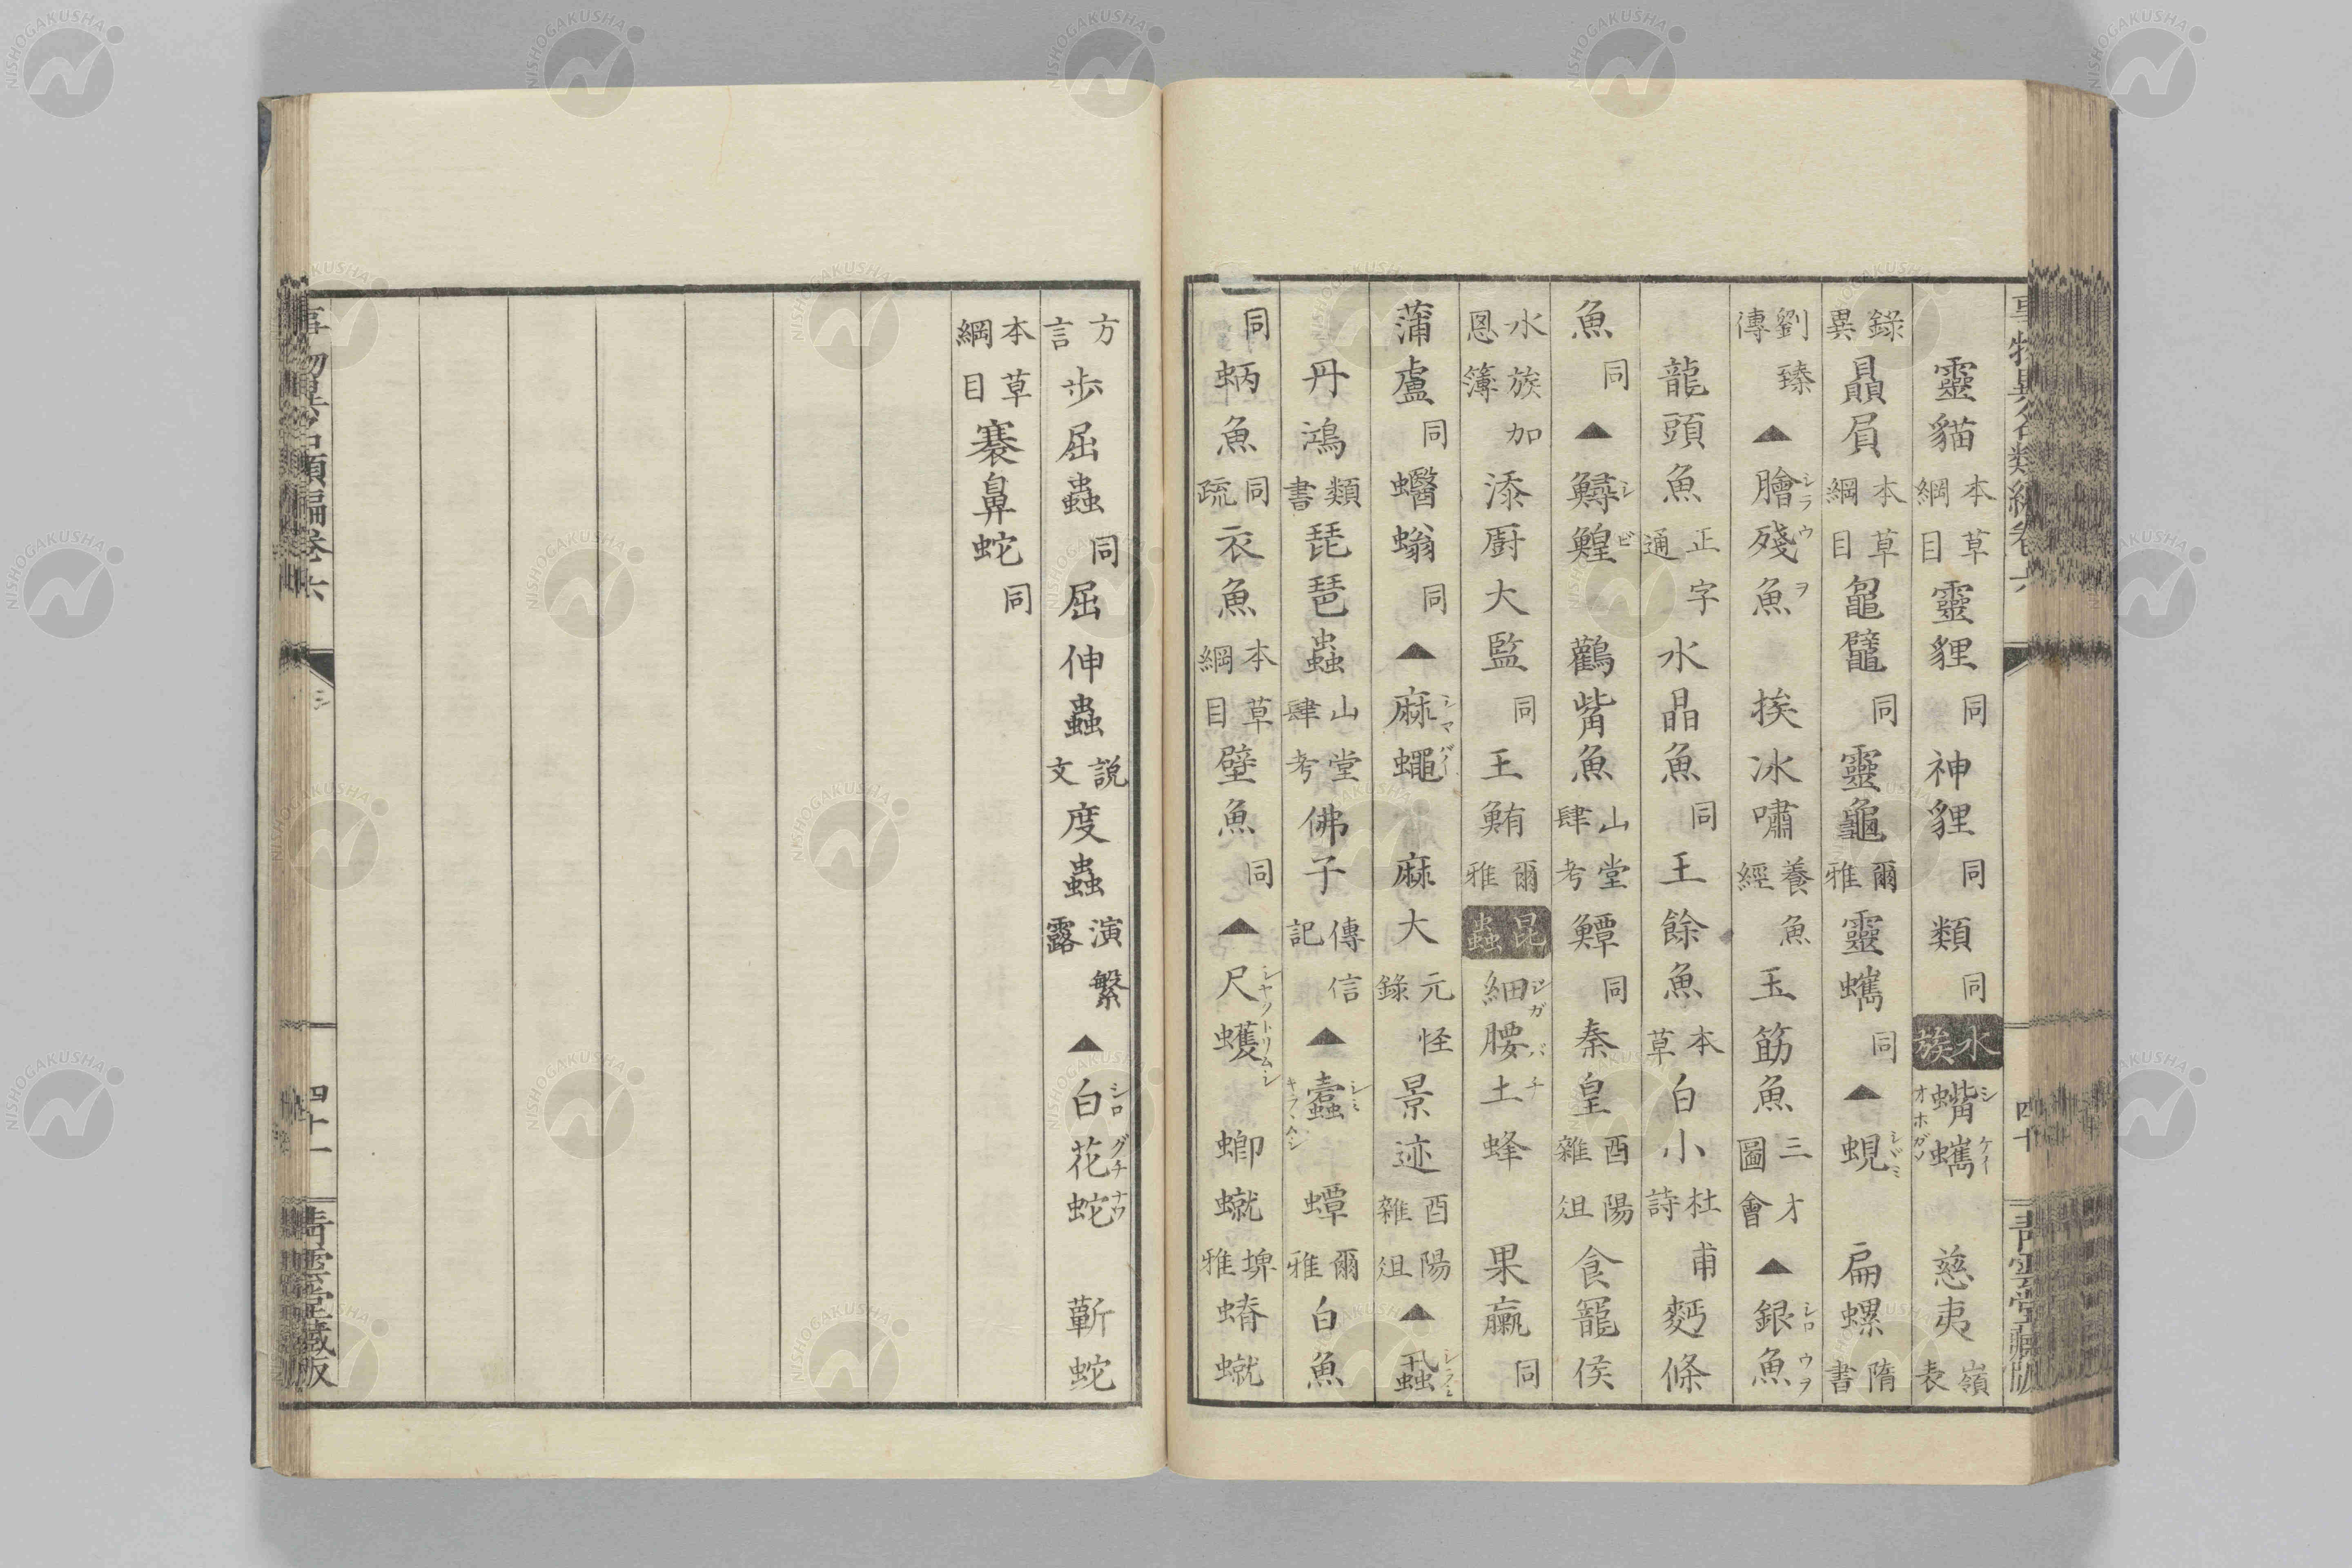 靈貓本草綱目靈貍同神貍同類同水族蟕シ蠵ケイオホガメ慈夷嶺表
錄異贔屓本草綱目鼅鼊同靈龜爾雅靈蠵同▲蜆シヾミ扁螺隋書
劉臻傳▲膾シラ殘ウ魚ヲ挨冰嘯養魚經玉筯魚三才圖會▲銀シロ魚ウヲ
龍頭魚正字通水晶魚同王餘魚本草白小杜甫詩麪條
魚同▲鱘シ鰉ビ鸛觜魚山堂肆考鱏同秦皇酉陽雜俎食寵侯
水族加恩簿添厨大監同王鮪爾雅昆蟲細ジガ腰バ土チ蜂果蠃同
蒲盧同蠮螉同▲麻シマ蠅バイ麻大元怪錄景迹酉陽雜俎▲蝨シラミ
丹鴻類書琵琶蟲山堂肆考佛子傳信記▲蠹シミキラヽムシ蟫爾雅白魚
同蛃魚同疏衣魚本草綱目壁魚同▲尺蠖シヤクトリムシ蝍𧑙埤雅蝽𧑙
方言步屈蟲同屈伸蟲說文度蟲演繁露▲白シロ花グチ蛇ナワ蘄蛇
本草綱目褰鼻蛇同
事物異名類編卷六
四十
青雲堂藏版
事物異名類編卷六
シ
四十一
青雲堂藏版
NISHOGAKUSHA